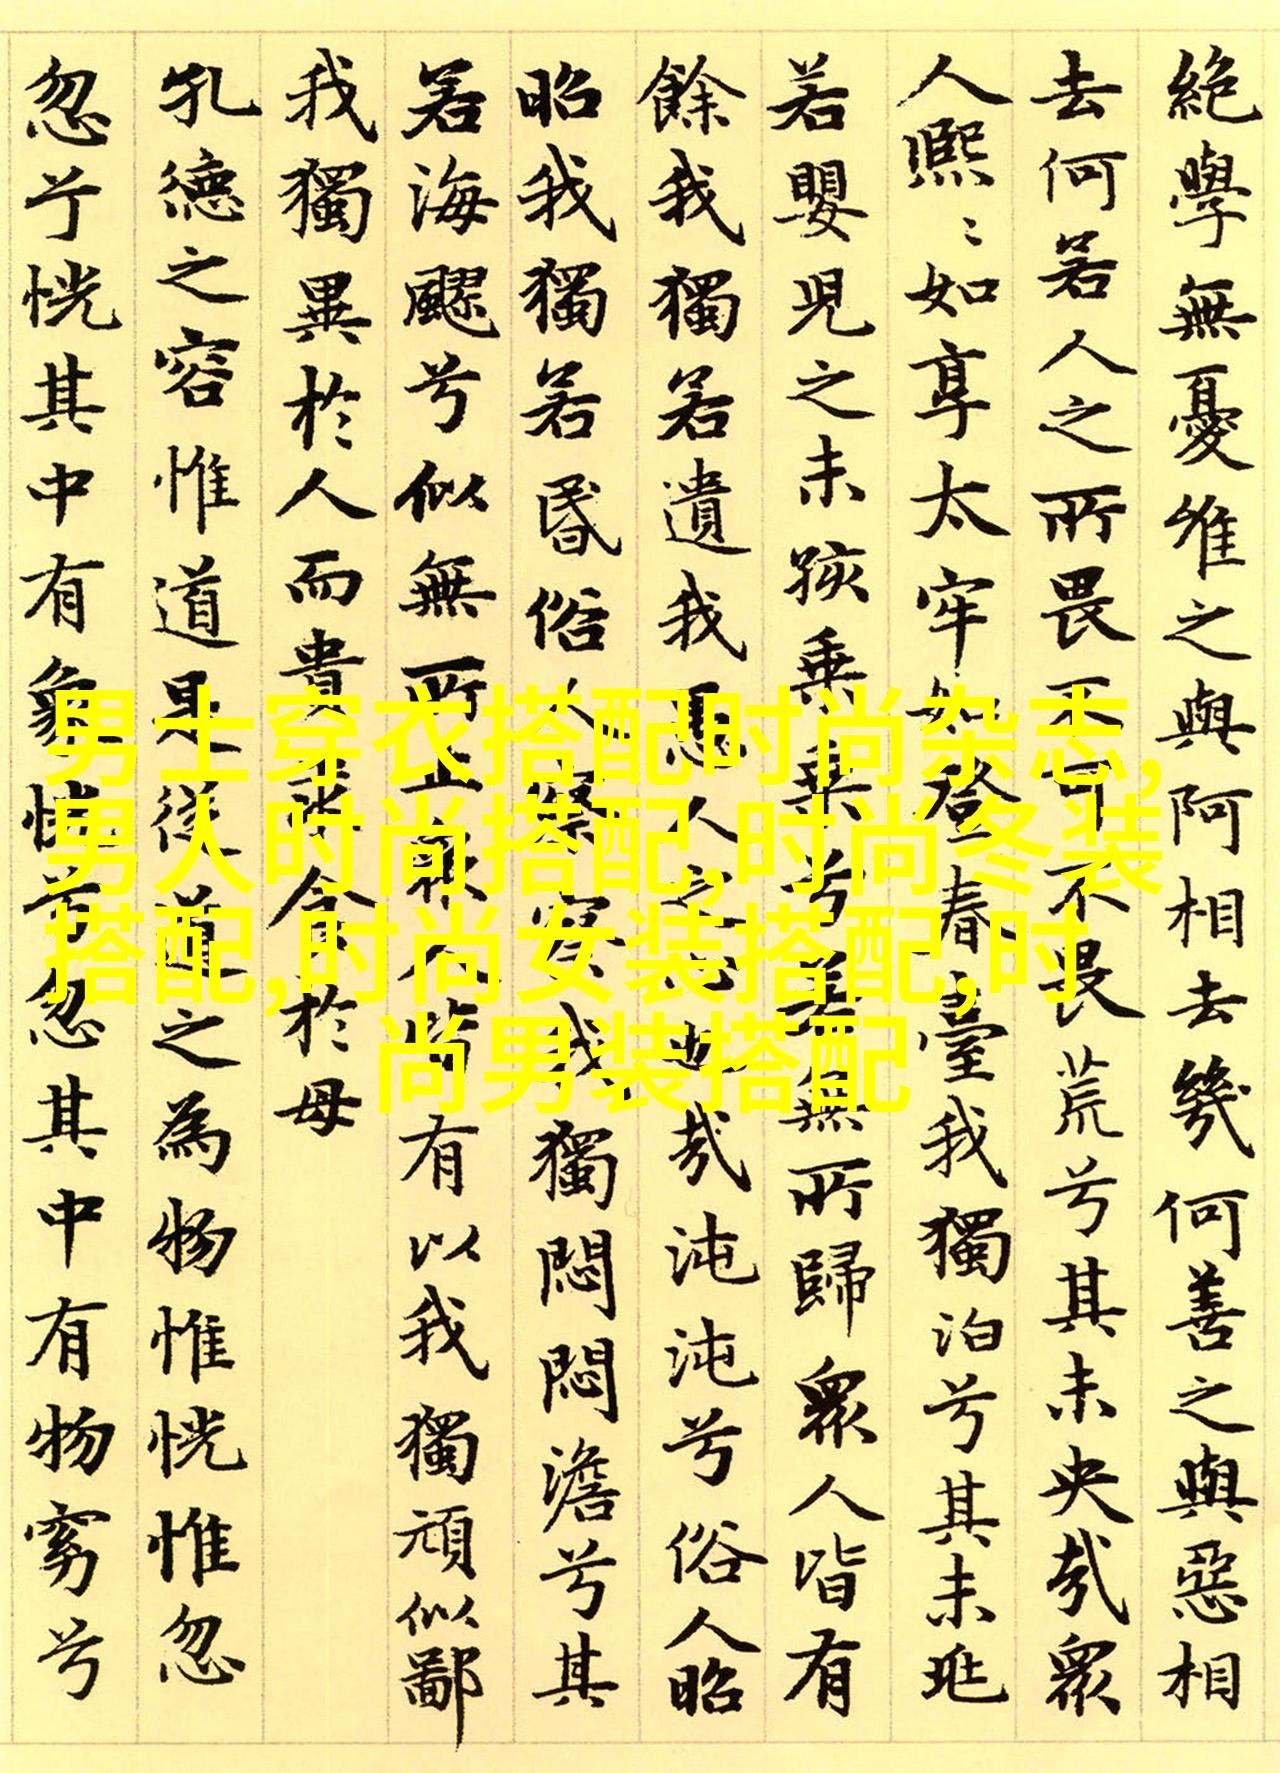 絶學無憂唯之與阿相去幾何善之與惡相
去何若人之所畏不可不畏荒兮其未央哉眾
人熙〻如享太牢如登春臺我獨泊兮其未兆
若嬰兒之未孩乗乗兮若無所歸眾人皆有
餘我獨若遺我愚人之心也哉沌沌兮俗人昭
昭我獨若昏俗人察察我獨悶悶澹兮其
若海飂兮似無所止眾人皆有以我獨頑似鄙
我獨異於人而貴求食於母
孔德之容惟道是從道之為物惟恍惟忽
忽兮恍其中有象恍兮忽其中有物窈兮
男士穿衣搭配时尚杂志,
男人时尚搭配,时尚冬装
搭配,时尚女装搭配,时
尚男装搭配